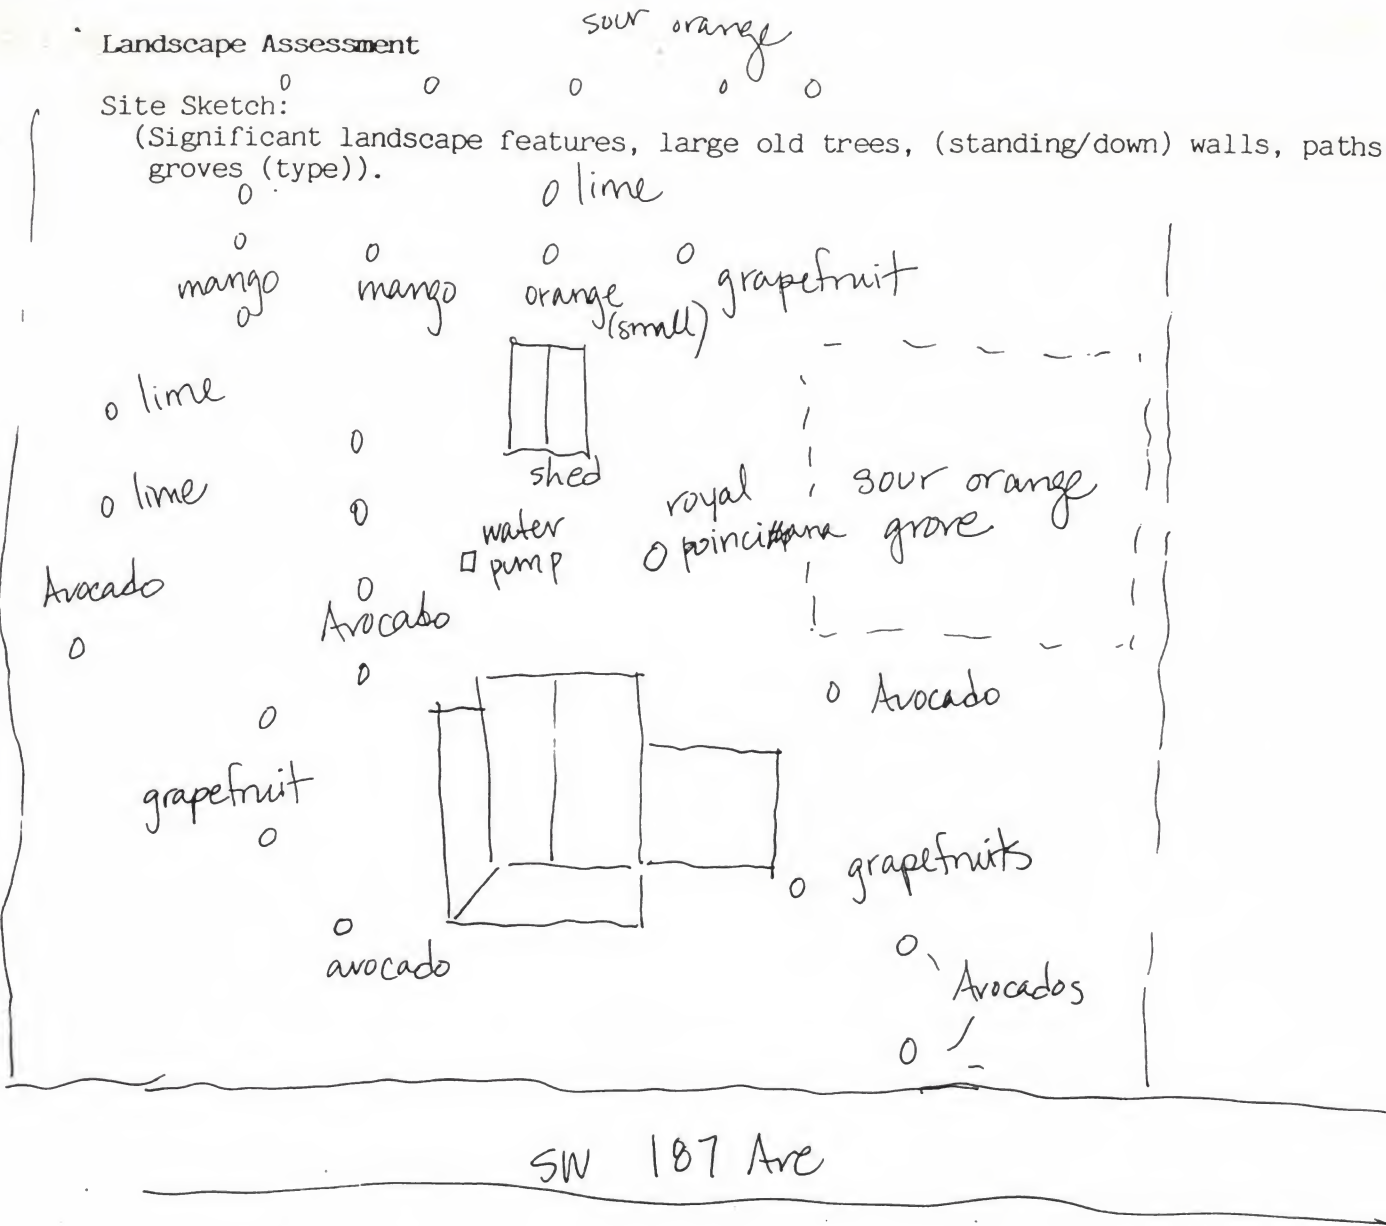 sour orange
Landscape Assessment
Site Sketch:
(Significant landscape features, large old trees, (standing/down) walls, paths
groves (type)).
lime
mango
mango
orange
(small)
grapefruit
lime
shed
lime
water
pump
royal
poinciana
sour orange
grove
Avocado
Avocado
Avocado
grapefruit
grapefruits
avocado
Avocados
SW 187 Ave